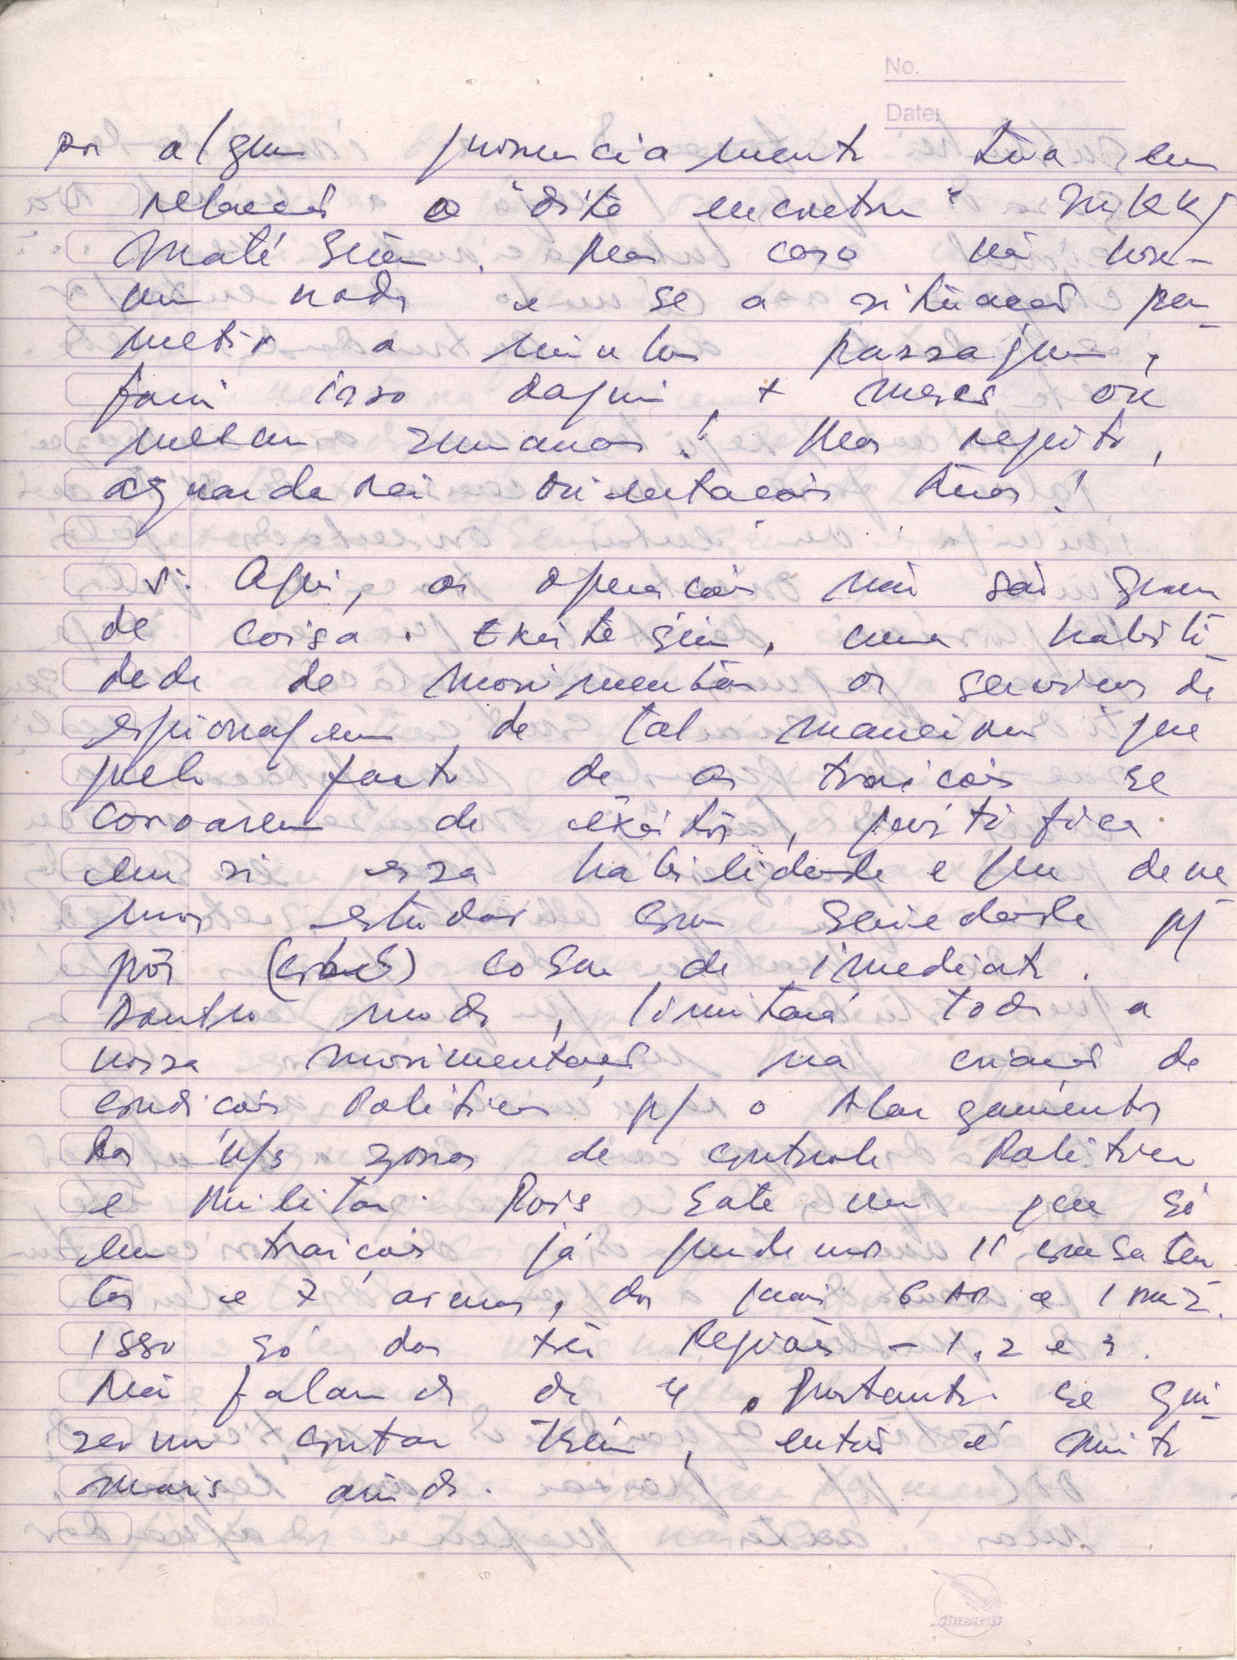 No.
Date:
por algum pronunciamento tua em
relacão o "dito encontro"
Maté Siém. Mas caso não hou-
ver nada e se a situacão per-
metir a minha passagem,
farei isso daqui + meses ou
mesmo semanas! Mas repito,
aguardarei orientacões tuas!
5. Aqui, as operacões não são gran
de coisa. Existe sim, uma habili-
dade de movimentar os servicos de
espionagem de tal maneira que
pelo facto de as traicões se
coroarem de êxitos, justifica
em si essa habilidade e que deve
mos estudar com seriedade p/
pôr cobro de imediato.
Doutro modo, limitará toda a
nossa movimentacão na criacão de
condicões Politicas p/ o Alargamento
das n/s zonas de controle Politico
e militar. Pois sabe que só
em traicões já perdemos 11 combaten
tes e 7 armas, das quais 6 AK e 1
Isso só das três Regiões - 1, 2 e 3.
Não falando da 4. Portanto se qui
zermos contar tbém, então é muito
mais ainda.